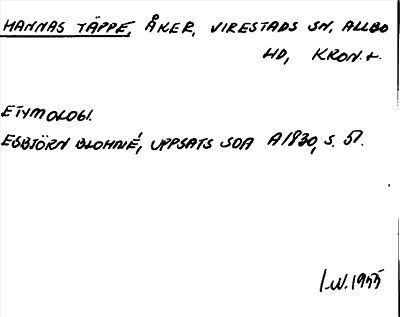 HANNAS TÄPPE, ÅKER, VIRESTADS SN, ALLBO
HD, KRON. L.
ETYMOLOGI.
ESBJÖRN BLOHMÉ, UPPSATS SOA A1830, S. 51.
I.W. 1955